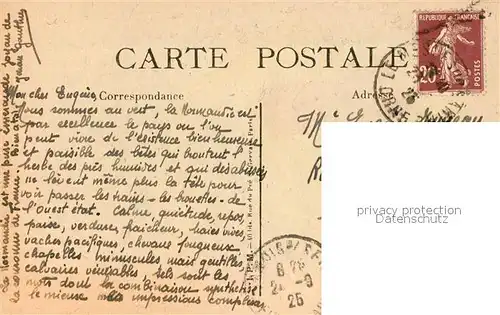 CARTE POSTALE
Correspondance
Adresse
RÉPUBLIQUE FRANÇAISE
20
POSTES
Mon cher Eugène
Nous sommes au vert, la Normandie est
par excellence le pays où l'on
peut vivre de l'existence bienheureuse
et paisible des bêtes qui broutent l'
herbe des prés humides et qui
ne lèvent même plus la tête pour
voir passer les trains - les de
l'Ouest état. Calme, quiétude, repos,
paise, verdure, fraicheur, haies vives,
vaches pacifiques, chevaux fougueux
chapelles minuscules mais gentilles,
calvaires vénérables, tels sont les
mots dont la combinaison synthétise
le mieux mes impressions complexes
La Normandie est une pure émeraude joyau de
la couronne de France.
privacy protection
Datenschutz
8
25